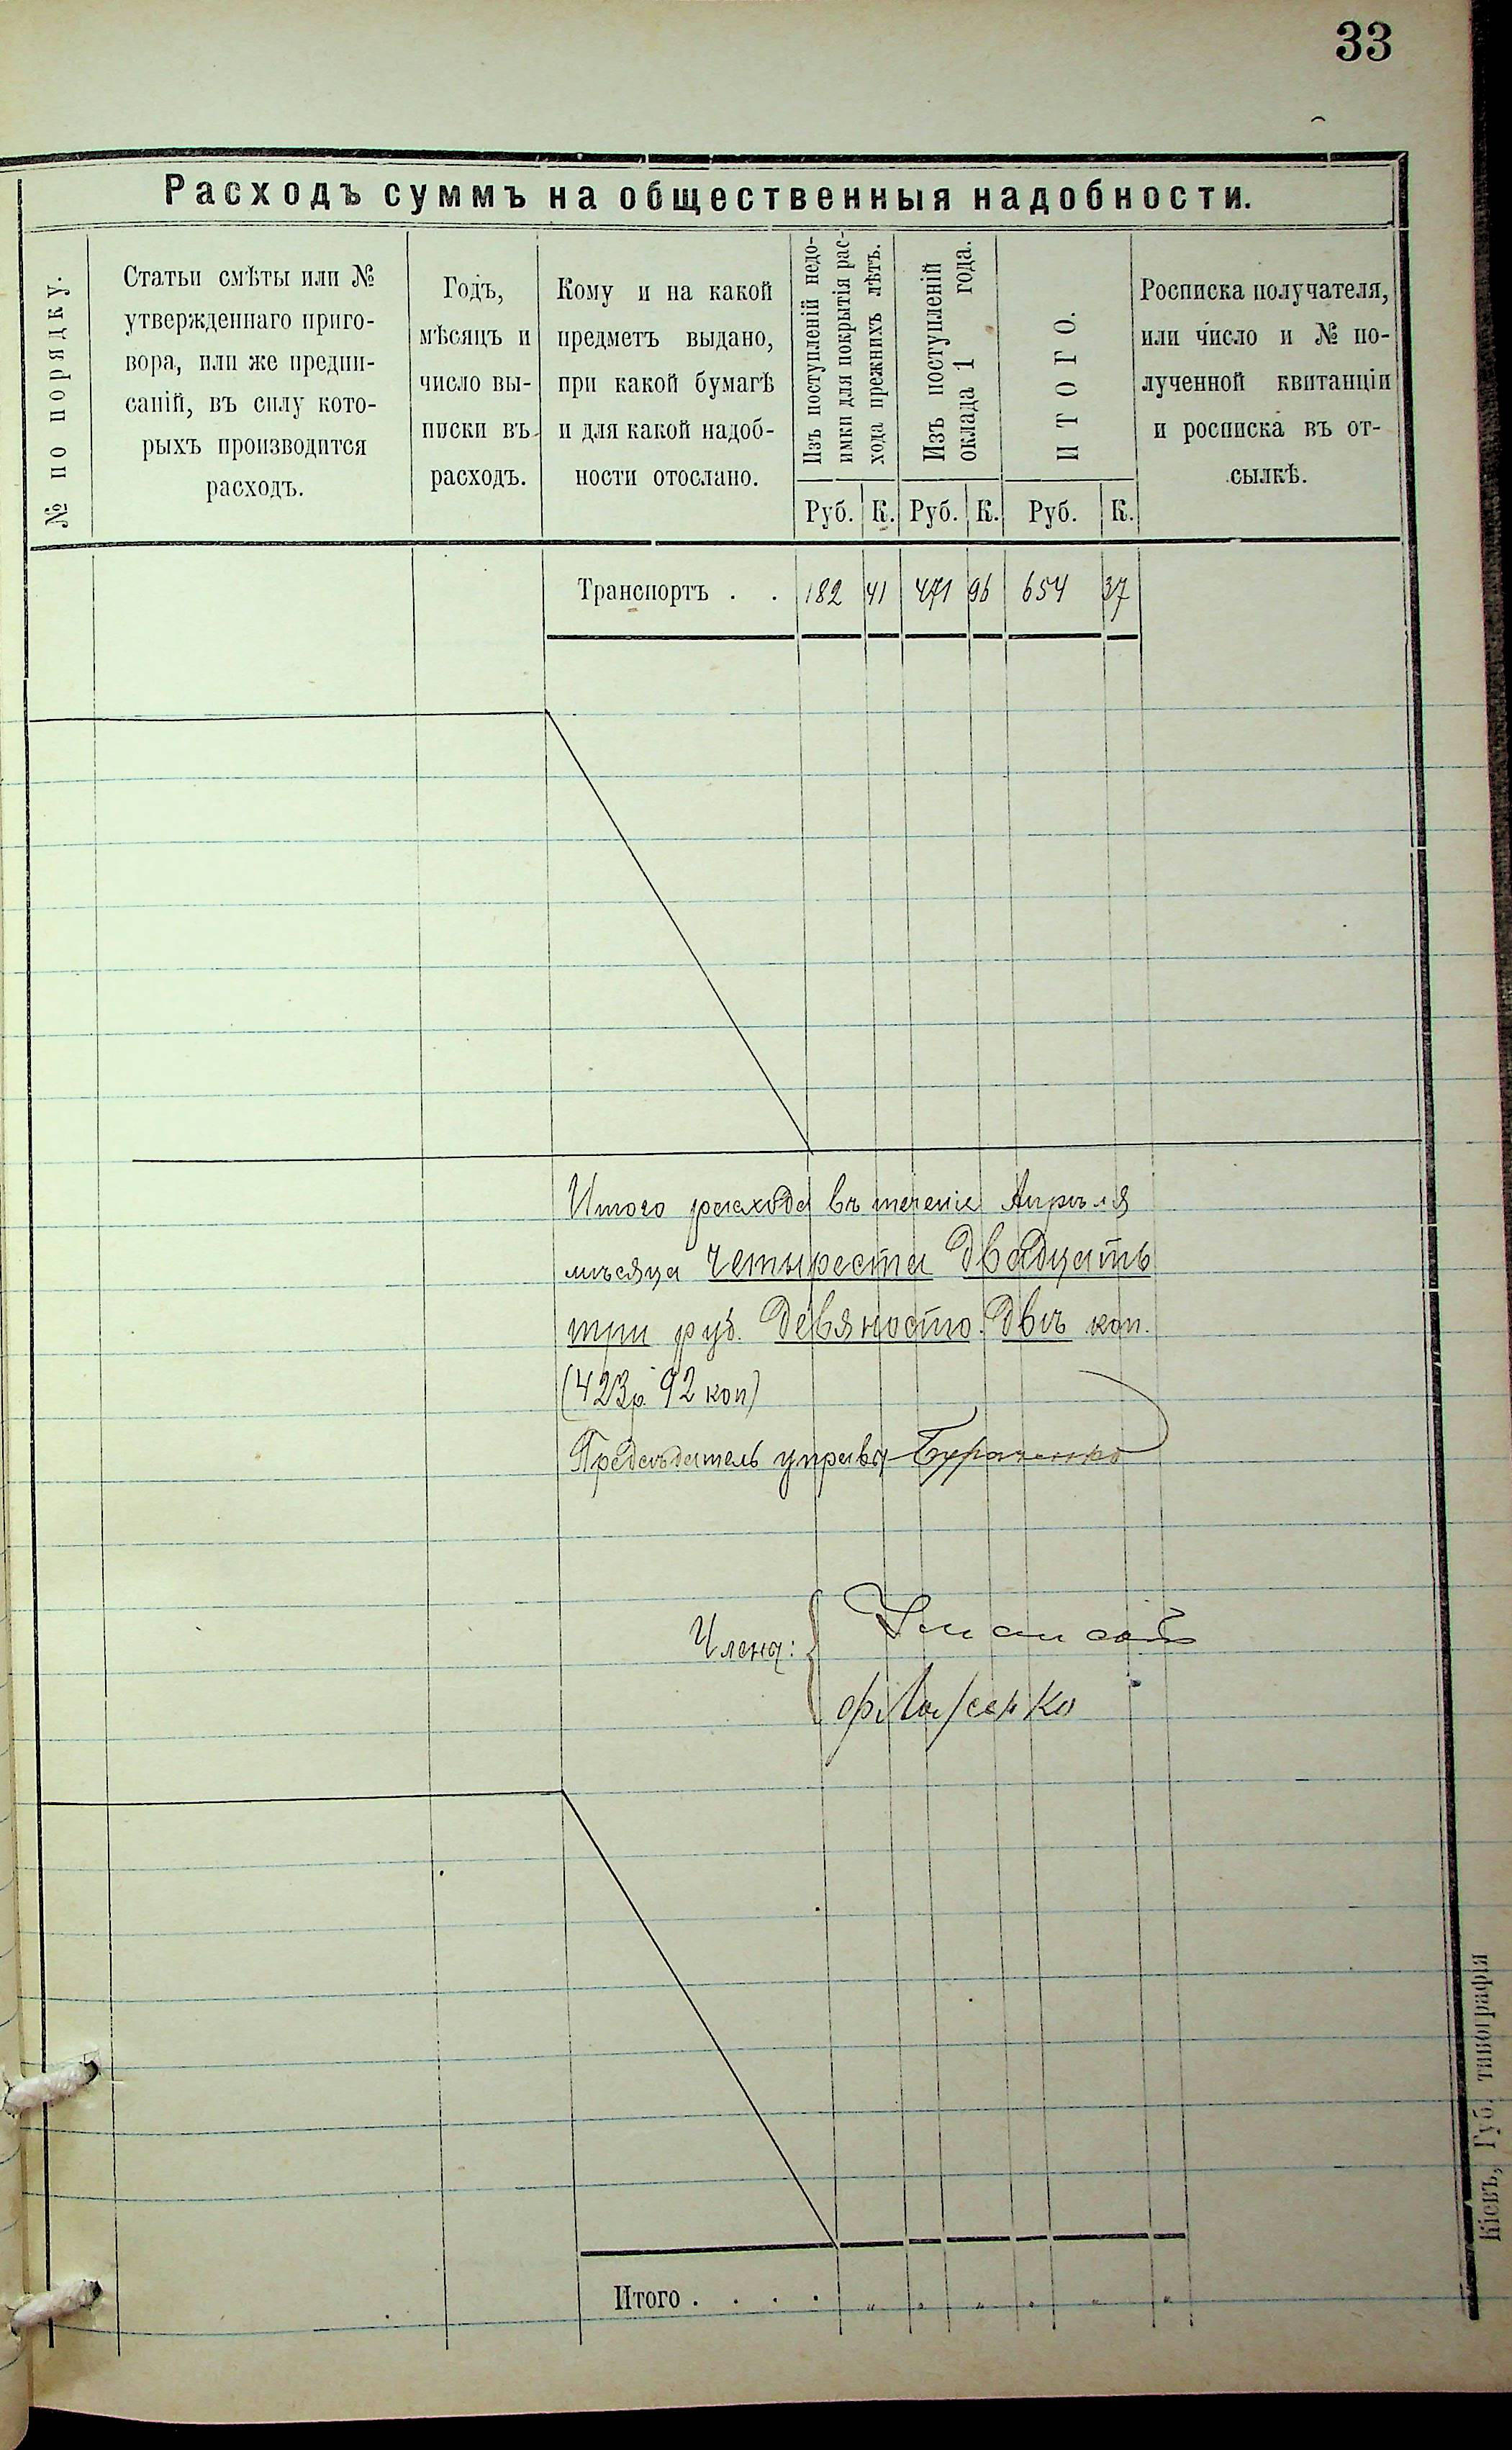 33
Расходъ суммъ на общественныя надобности.
№ по порядку.
Статьи смѣты или №
утвержденнаго приго-
вора, или же предпи-
саній, въ силу кото-
рыхъ производится
расходъ.
Годъ,
мѣсяцъ и
число вы-
писки въ
расходъ.
Кому и на какой
предметъ выдано,
при какой бумагѣ
и для какой надоб-
ности отослано.
Изъ поступленій недо-
имки для покрытія рас-
хода прежнихъ лѣтъ.
Изъ поступленій
оклада 1 года.
ИТОГО.
Росписка получателя,
или число и № по-
лученной квитанціи
и росписка въ от-
сылкѣ.
Руб. К. Руб. К. Руб. К.
Транспортъ . . 182 41 471 96 654 37
Итого расхода въ теченіе Апрѣля
мѣсяца Четыреста двадцать
три руб. девяносто двѣ коп.
(423р. 92 коп)
Предсѣдатель управы
Члены:
Итого . . . . " " " " " "
Кіевъ, Губ. типографія